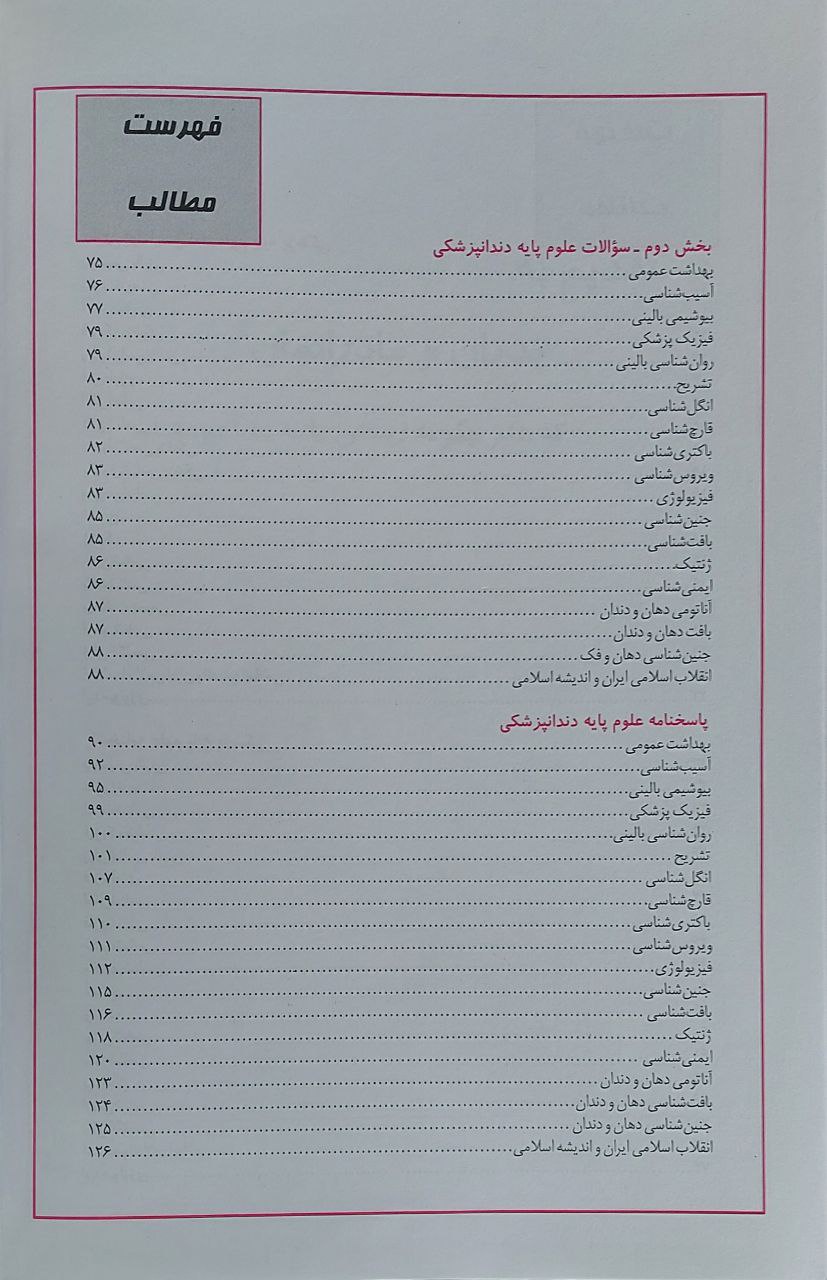 فهرست
مطالب
بخش دوم ـ سؤالات علوم پایه دندانپزشکی
بهداشت عمومی ۷۵
آسیب‌شناسی ۷۶
بیوشیمی بالینی ۷۷
فیزیک پزشکی ۷۹
روان‌شناسی بالینی ۷۹
تشریح ۸۰
انگل‌شناسی ۸۱
قارچ‌شناسی ۸۱
باکتری‌شناسی ۸۲
ویروس‌شناسی ۸۳
فیزیولوژی ۸۳
جنین‌شناسی ۸۵
بافت‌شناسی ۸۵
ژنتیک ۸۶
ایمنی‌شناسی ۸۶
آناتومی دهان و دندان ۸۷
بافت دهان و دندان ۸۷
جنین‌شناسی دهان و فک ۸۸
انقلاب اسلامی ایران و اندیشه اسلامی ۸۸
پاسخنامه علوم پایه دندانپزشکی
بهداشت عمومی ۹۰
آسیب‌شناسی ۹۲
بیوشیمی بالینی ۹۵
فیزیک پزشکی ۹۹
روان‌شناسی بالینی ۱۰۰
تشریح ۱۰۱
انگل‌شناسی ۱۰۷
قارچ‌شناسی ۱۰۹
باکتری‌شناسی ۱۱۰
ویروس‌شناسی ۱۱۱
فیزیولوژی ۱۱۲
جنین‌شناسی ۱۱۵
بافت‌شناسی ۱۱۶
ژنتیک ۱۱۸
ایمنی‌شناسی ۱۲۰
آناتومی دهان و دندان ۱۲۳
بافت‌شناسی دهان و دندان ۱۲۴
جنین‌شناسی دهان و دندان ۱۲۵
انقلاب اسلامی ایران و اندیشه اسلامی ۱۲۶